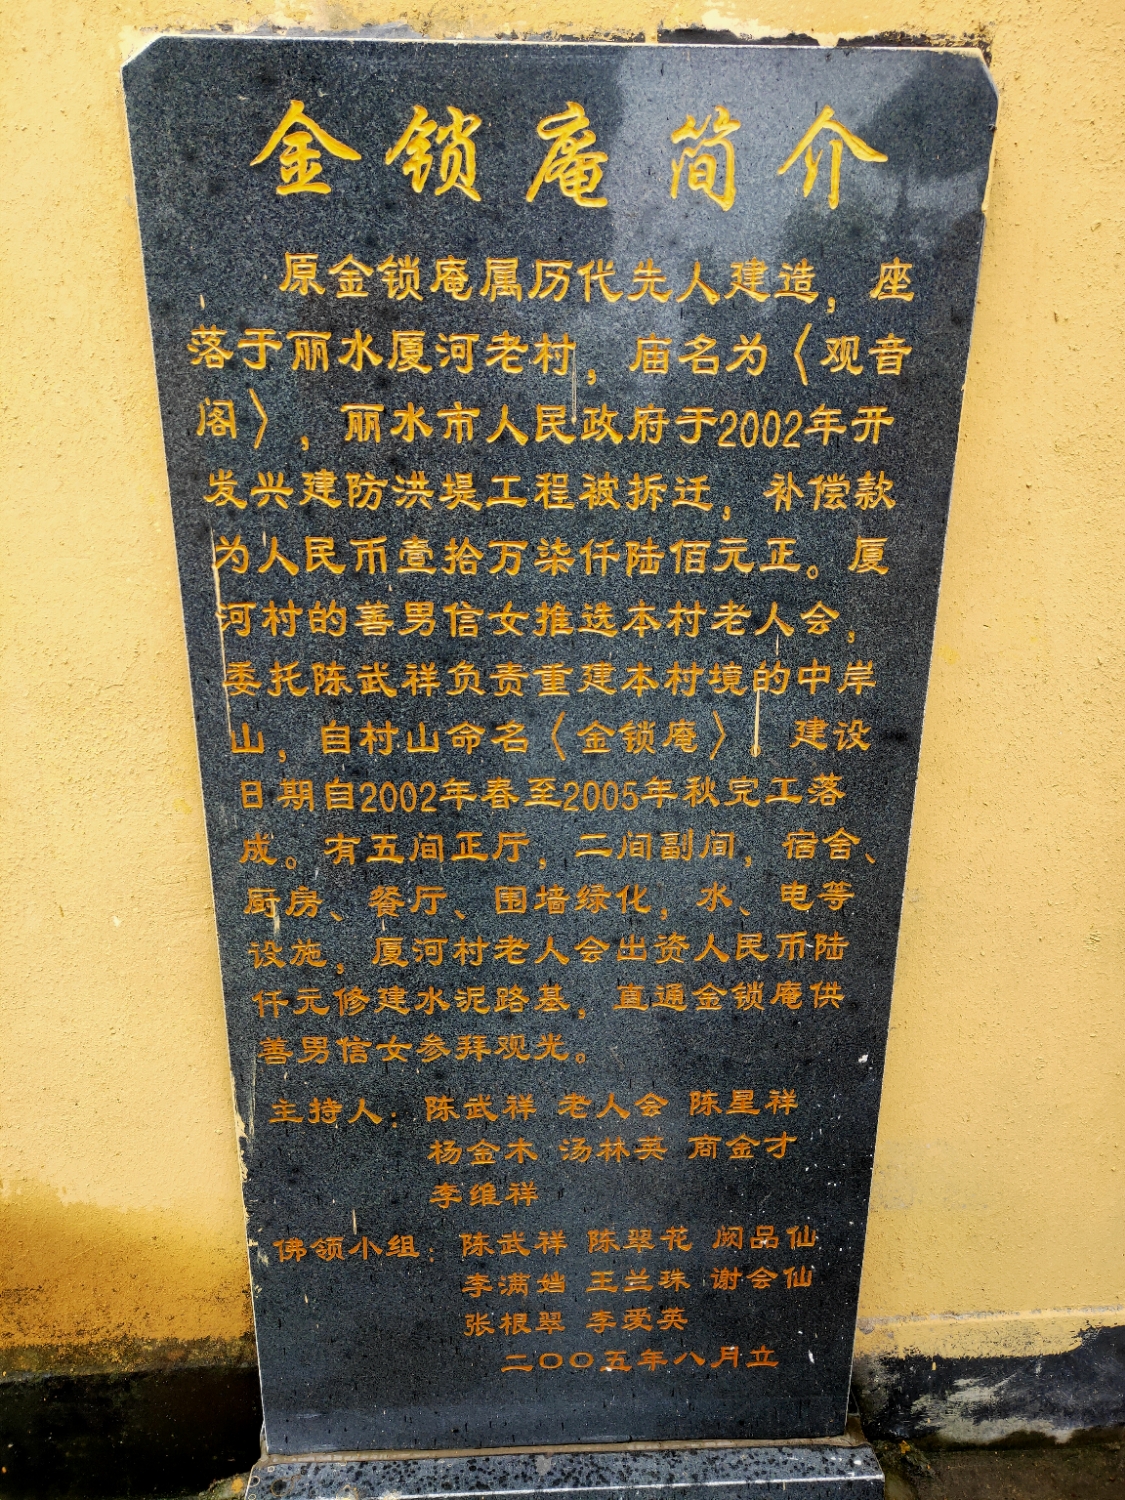 金锁庵简介
原金锁庵属历代先人建造，座
落于丽水厦河老村，庙名为〈观音
阁〉，丽水市人民政府于2002年开
发兴建防洪堤工程被拆迁，补偿款
为人民币壹拾万柒仟陆佰元正。厦
河村的善男信女推选本村老人会，
委托陈武祥负责重建本村境的中岸
山，自村山命名〈金锁庵〉，建设
日期自2002年春至2005年秋完工落
成。有五间正厅，二间副间，宿舍、
厨房、餐厅、围墙绿化，水、电等
设施，厦河村老人会出资人民币陆
仟元修建水泥路基，直通金锁庵供
善男信女参拜观光。
主持人：陈武祥 老人会 陈星祥
杨金木 汤林英 商金才
李维祥
佛领小组：陈武祥 陈翠花 阙品仙
李满 王兰珠 谢会仙
张根翠 李爱英
二〇〇五年八月立